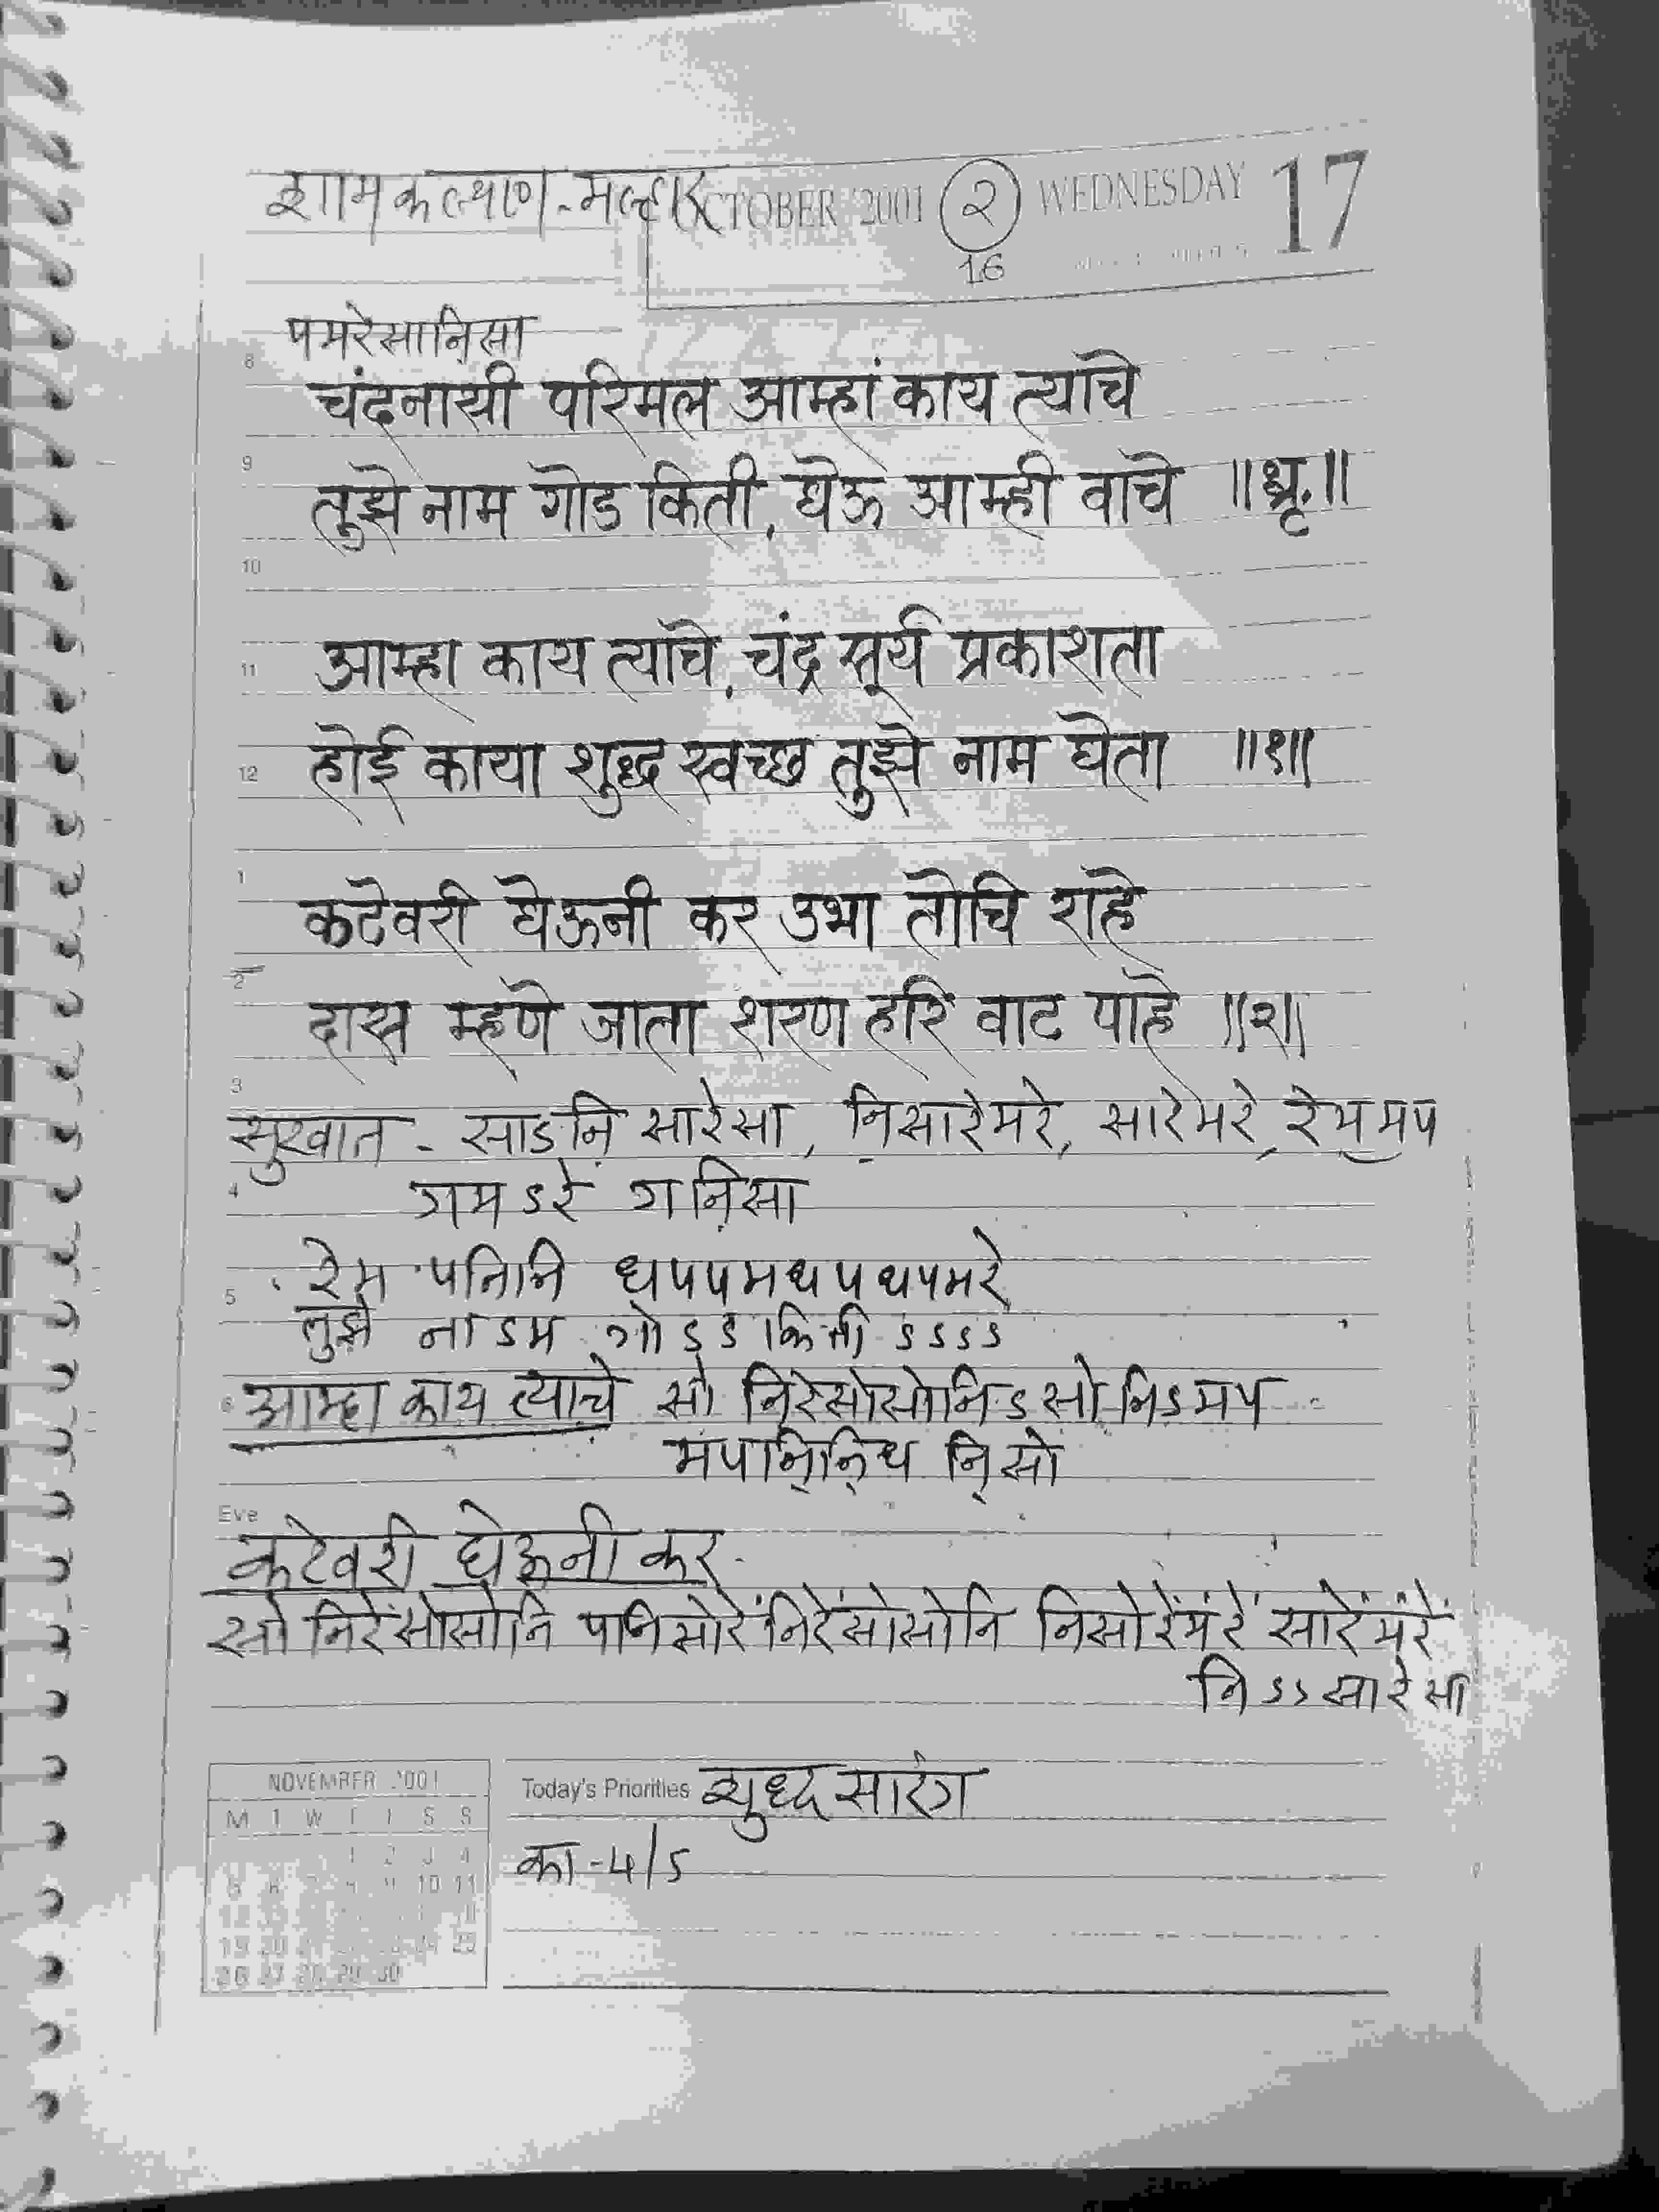 शामकल्याण - मल्हार OCTOBER 2001 २ WEDNESDAY 17
16
पमरेसानि़सा
8
चंदनायी परिमल आम्हां काय त्याचे
9
तुझे नाम गोड किती, घेऊ आम्ही वाचे ॥धृ.॥
10
11 आम्हा काय त्याचे, चंद्र सूर्य प्रकाशता
12 होई काया शुद्ध स्वच्छ तुझे नाम घेता ॥१॥
1
कटेवरी घेऊनी कर उभा तोचि राहे
2
दास म्हणे जाता शरण हरि वाट पाहे ॥२॥
3
सुखात - साऽनि़ सारेसा, नि़सारेमरे, सारेमरे, रेममप
4 गमऽरे गनि़सा
5 रेम पनिनि धपपमधपधपमरे
तुझे नाऽम गोऽऽ किती ऽऽऽऽ
6 आम्हा काय त्याचे सां निरेंसांसांनिऽ सांनिऽमप
मपनि्नि्ध नि्सां
Eve
कटेवरी घेऊनी कर
सां निरेंसांसांनि पनिसांरें निरेंसांसांनि निसांरेंमंरें सारेंमंरें
निऽऽसारेसा
NOVEMBER 2001 Today's Priorities शुद्ध सारंग
M T W T F S S
का - 4/5
1 2 3 4
10 11
19 20 25
26 27 28 29 30